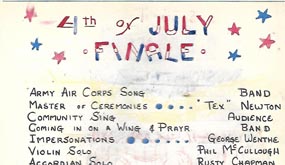 4th of JULY
• FINALE •
"ARMY AIR CORPS SONG BAND
MASTER OF CEREMONIES • • • • "TEX" NEWTON
COMMUNITY SING AUDIENCE
COMING IN ON A WING & PRAYR BAND
IMPERSONATIONS • • • • • GEORGE WENTHE
VIOLIN SOLO PHIL MCCULLOUGH
ACCORDIAN SOLO RUSTY CHAPMAN